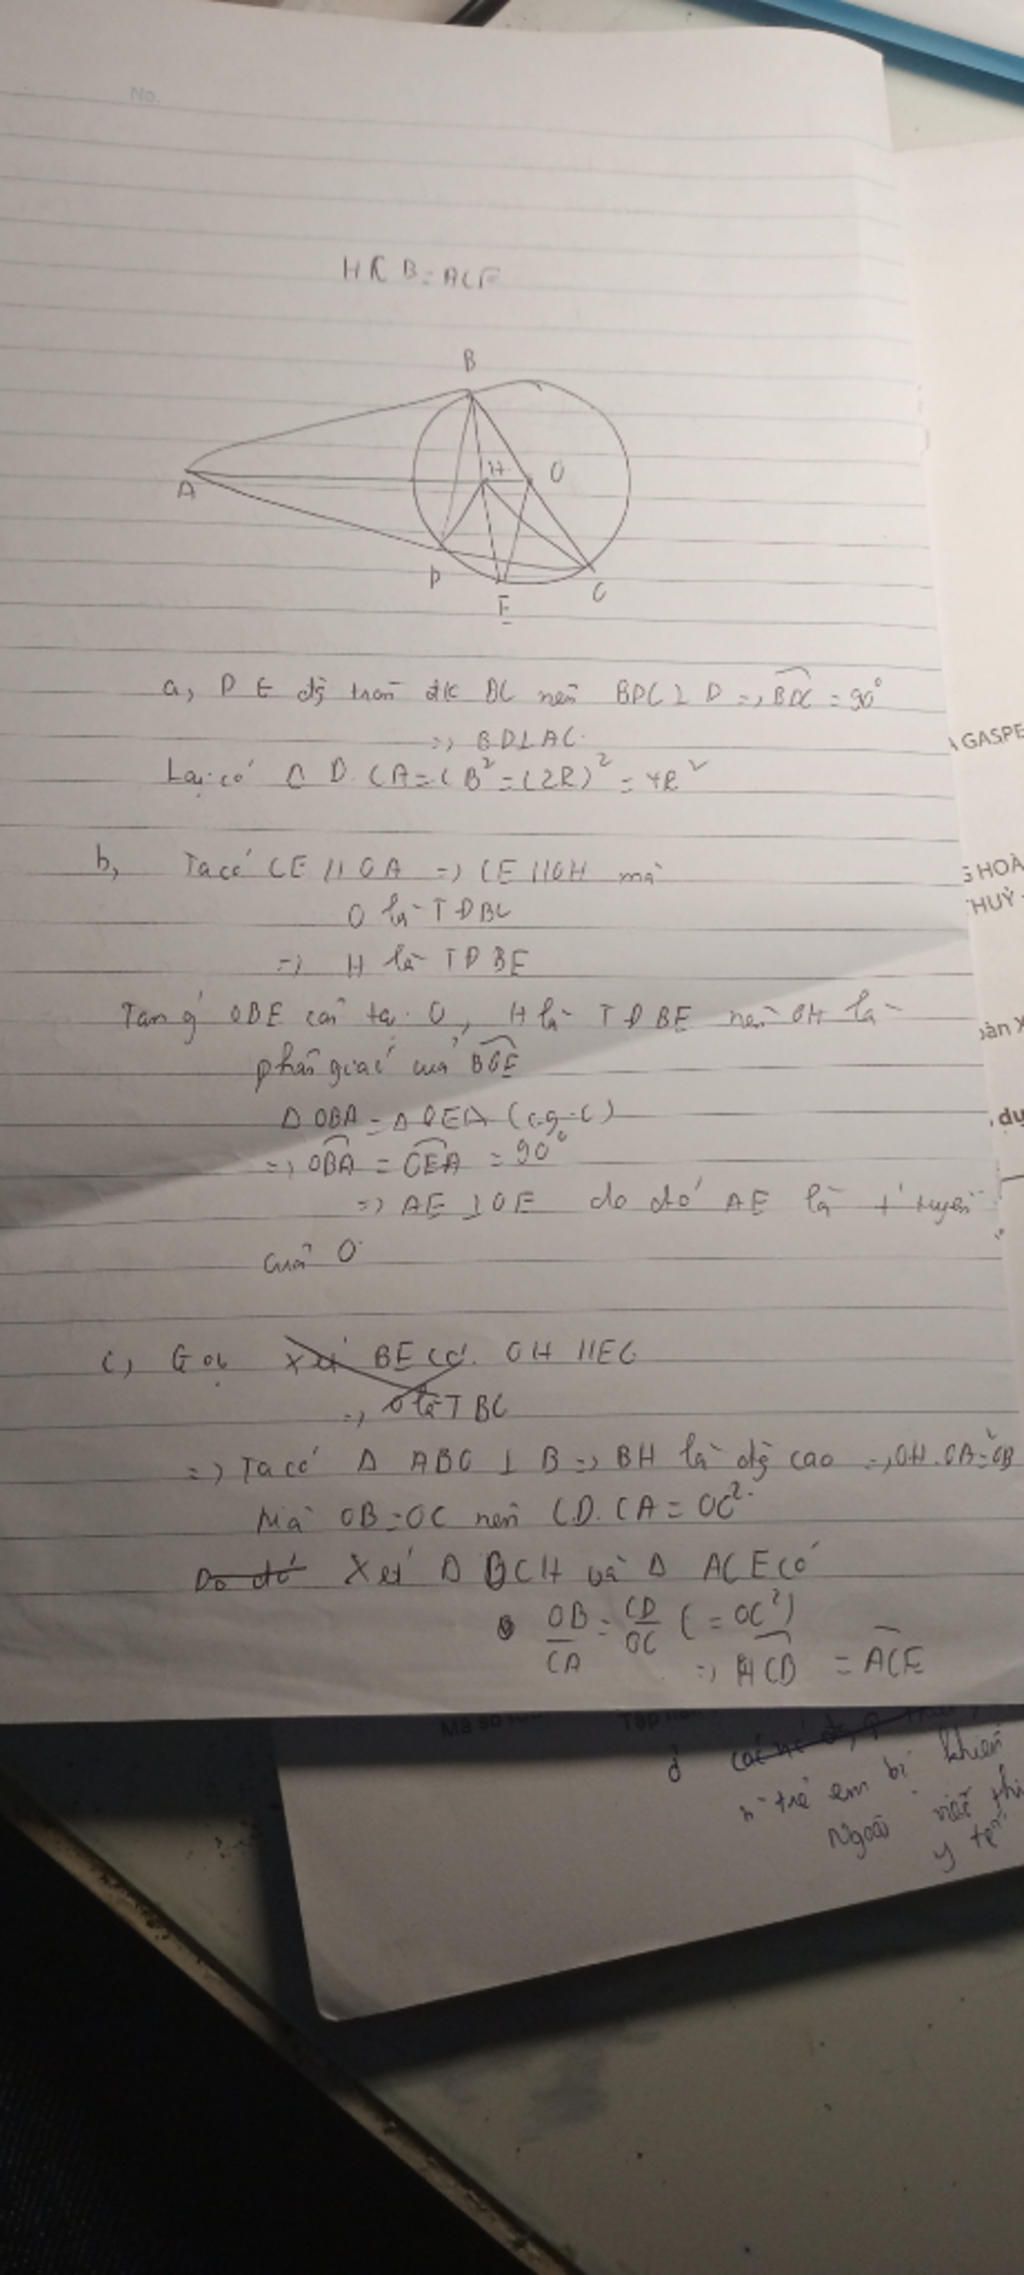 No.
HCB = ACE
B
A
H
O
D
E
C
a, D E đg tròn đk BC nên BDC ⊥ D => BDC = 90°
=> BD ⊥ AC
Lại có CD.CA = CB² = (2R)² = 4R²
b, Ta có CE // OA => CE // OH mà
O là TĐ BC
=> H là TĐ BE
Tam g' OBE cân tại O, H là TĐ BE nên OH là
phân giác của BOE
Δ OBA = Δ OEA (c.g.c)
=> OBA = OEA = 90°
=> AE ⊥ OE do đó AE là t' tuyến
của O
c, Gọi Xét BE có OH // EC
=> O là T BC
=> Ta có Δ ABO ⊥ B => BH là đg cao => OH.OA = OB²
Mà OB = OC nên CD.CA = OC²
Do đó Xét Δ BCH và Δ ACE có
OB/CA = CD/OC (= OC²)
=> HCB = ACE
A GASPE
G HOÀ
THUÝ
oàn X
dụ
Mã số
Tập
n trẻ em bị khiến
Ngoài việc thi
y tế